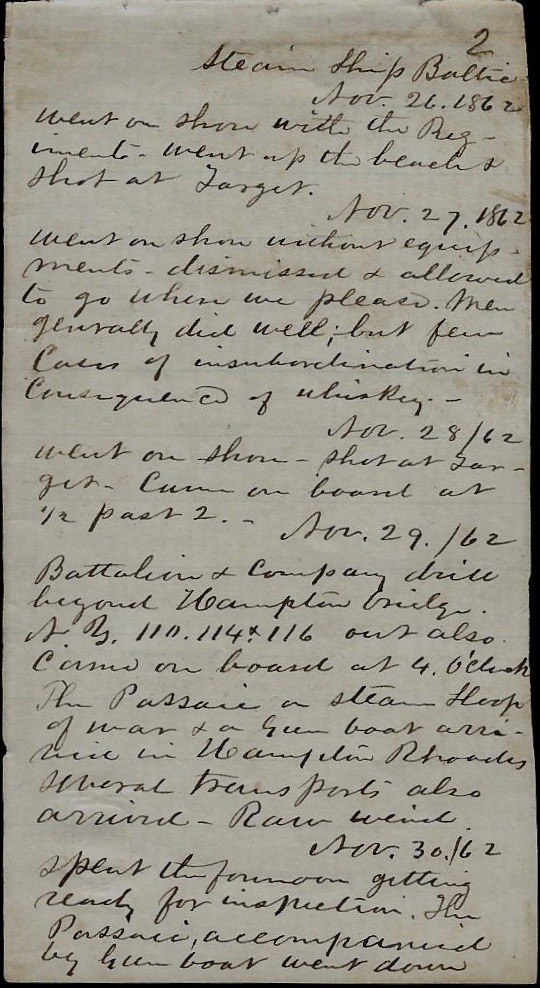 2
Steam Ship Baltic
Nov. 26. 1862
went on shore with the Reg-
iment - went up the beach &
shot at Target.
Nov. 27. 1862
went on shore without equip-
ments - dismissed & allowed
to go where we please. Men
generally did well; but few
Cases of insubordination in
Consequence of whiskey. -
Nov. 28/62
went on shore - shot at Tar-
get - Came on board at
1/2 past 2. -
Nov. 29./62
Battalion & Company drill
beyond Hampton bridge.
N. Y. 110. 114 & 116 out also.
Came on board at 4. O'clock
The Passaic a steam Sloop
of war & a Gun boat arri-
ved in Hampton Rhoades
several transports also
arrived - Raw wind.
Nov. 30./62
spent the forenoon getting
ready for inspection. The
Passaic, accompanied
by Gun boat went down